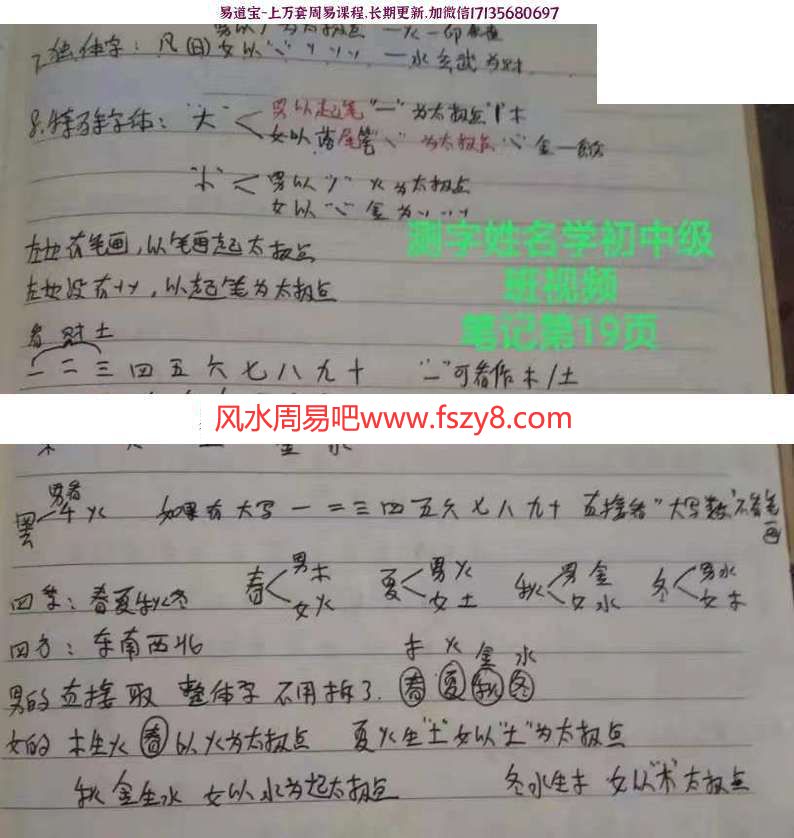 易道宝-上万套周易课程,长期更新,加微信17135680697
7.独体字：凡(日) 女以 一水玄武
8.特殊字体："大" 男以起笔"一"为太极点 木
女以落尾笔"乀"为太极点 金
"小" 男以"丿"火为太极点
女以"乀"金为〃〃〃
左边有笔画,以笔画起太极点
左边没有〃,以起笔为太极点
测字姓名学初中级
班视频
笔记第19页
看 土
一二三四五六七八九十 "一"可看作木/土
风水周易吧www.fszy8.com
木 火 土 金 水
男看
火 如果有大写一二三四五六七八九十直接看"大写数"不看笔画
四季：春夏秋冬 春 男木 女火 夏 男火 女土 秋 男金 女水 冬 男水 女木
四方：东南西北 木火金水
男的直接取整体字不用拆了.春夏秋冬
女的 木生火 春 以火为太极点 夏火生"土"女以"土"为太极点
秋金生水 女以水为起太极点 冬水生木 女以"木"太极点